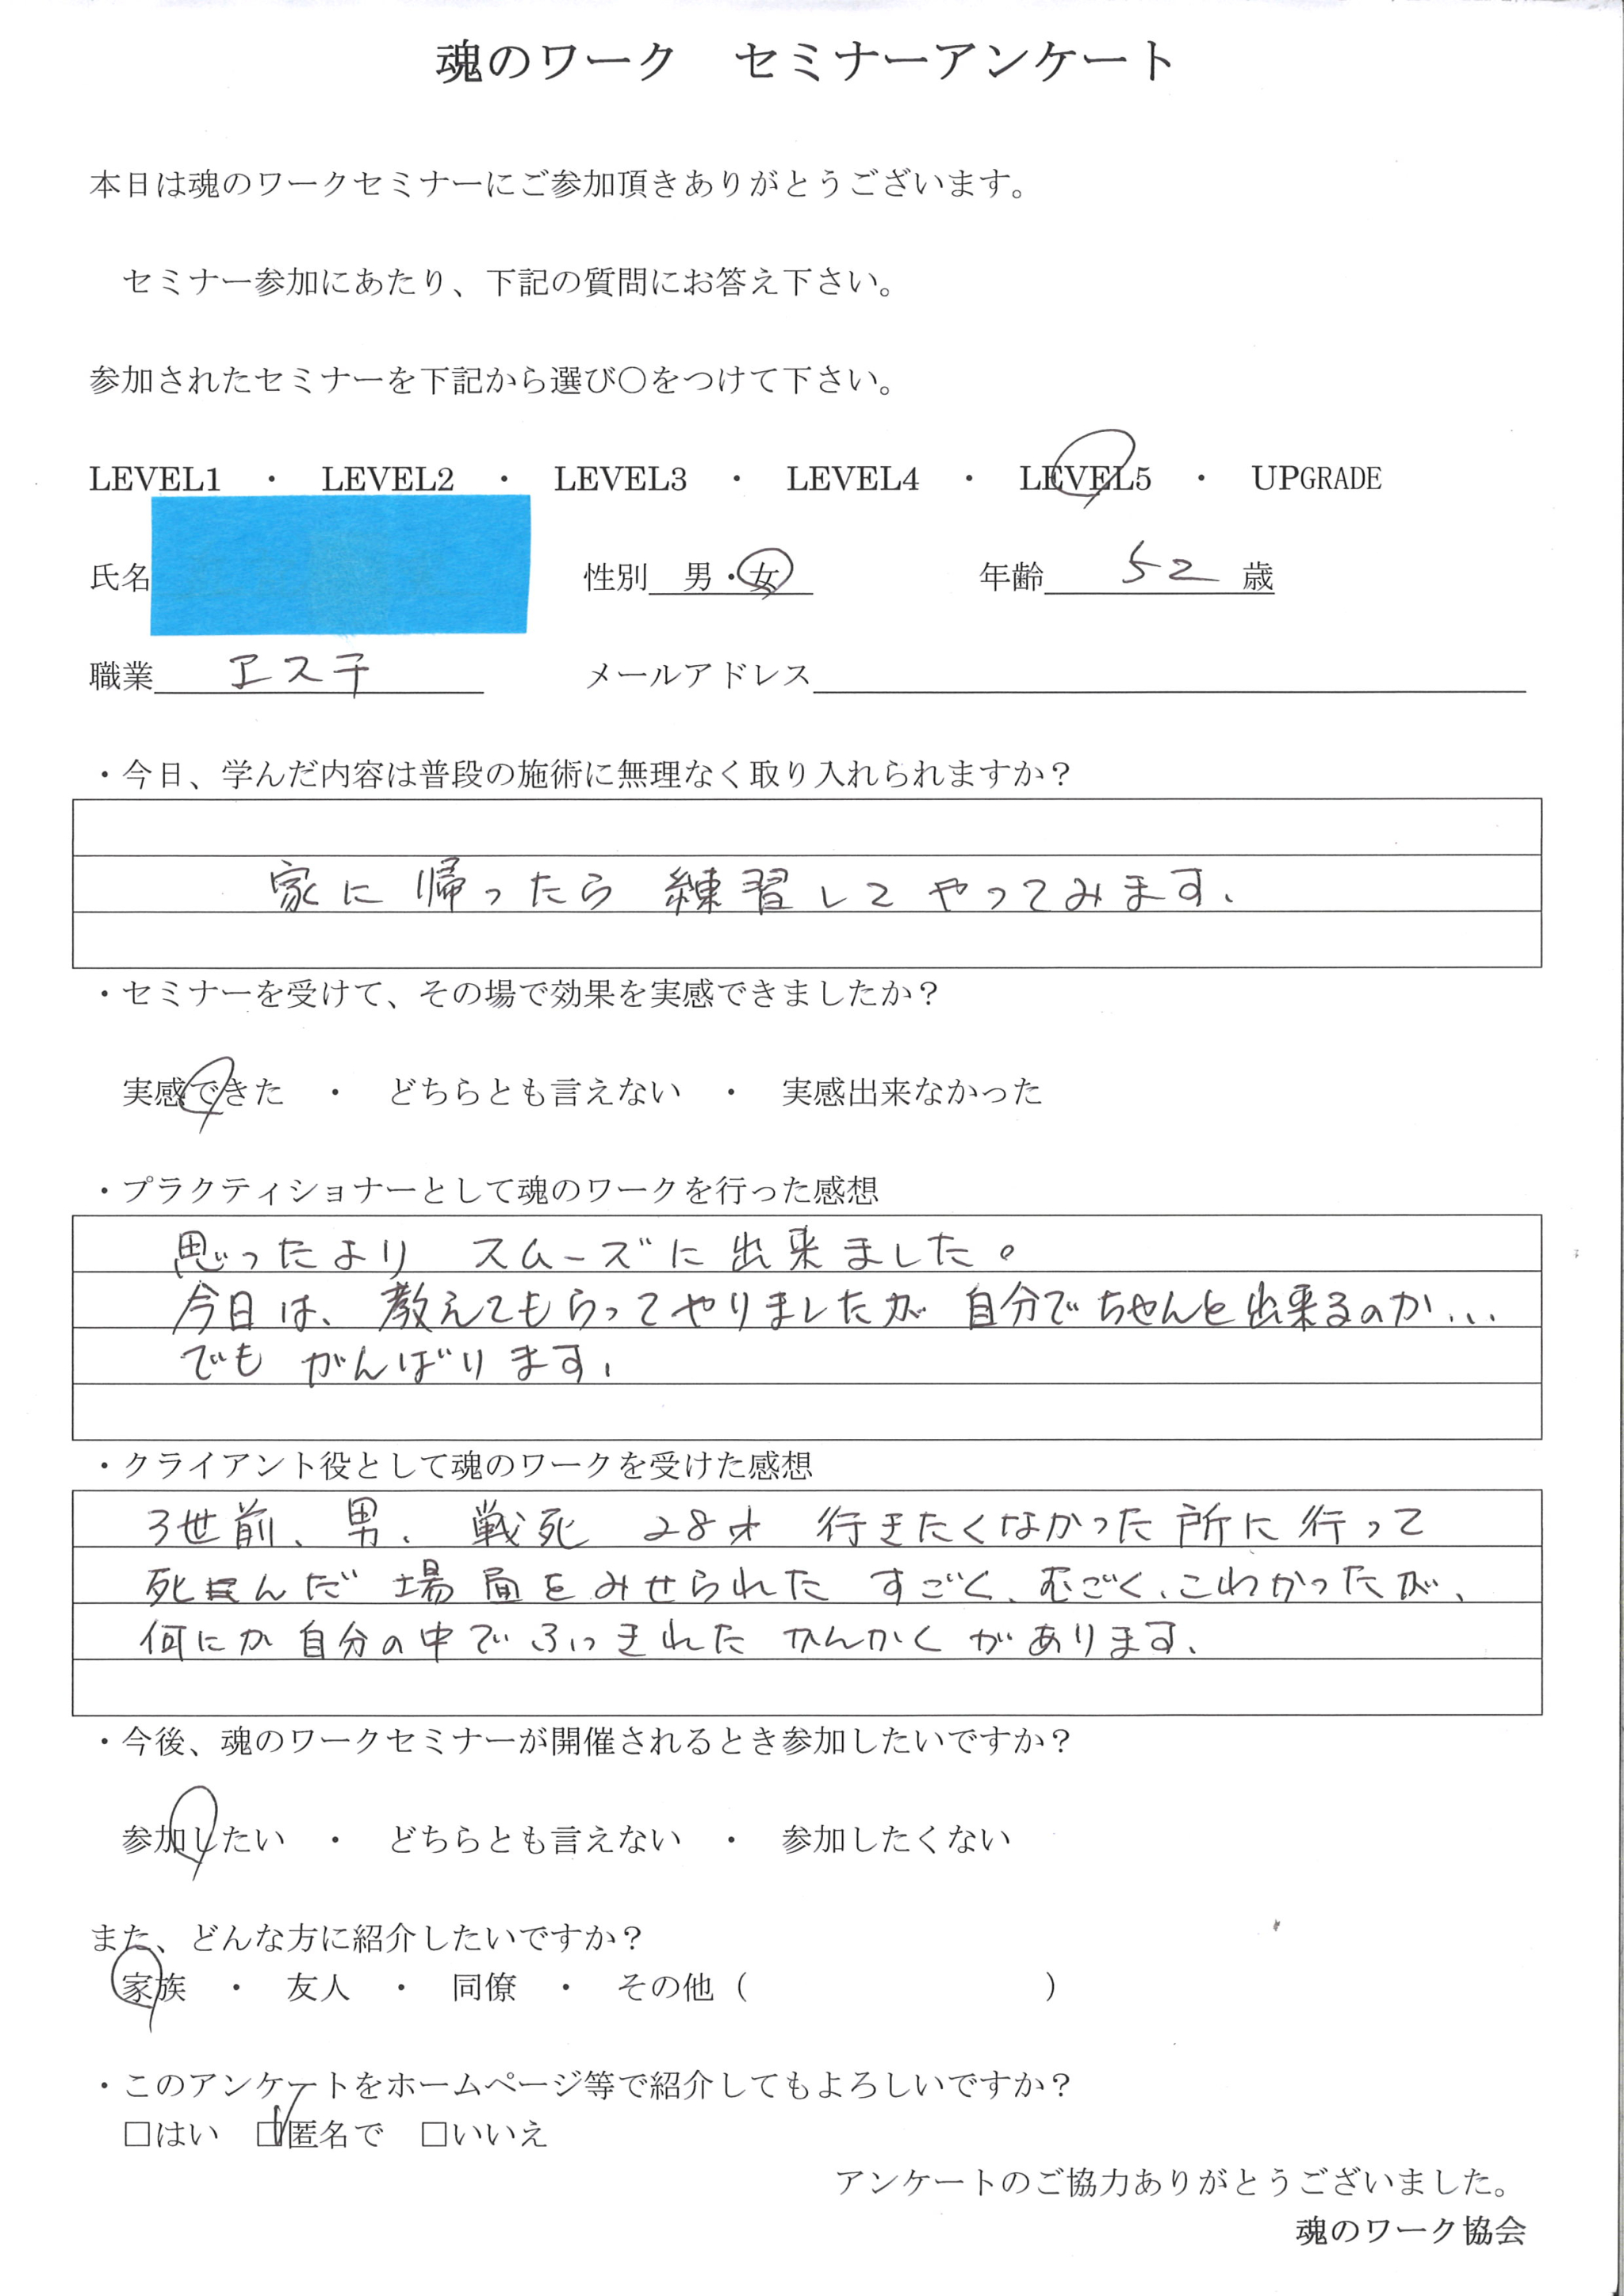 魂のワーク　セミナーアンケート
本日は魂のワークセミナーにご参加頂きありがとうございます。
セミナー参加にあたり、下記の質問にお答え下さい。
参加されたセミナーを下記から選び〇をつけて下さい。
LEVEL1 ・ LEVEL2 ・ LEVEL3 ・ LEVEL4 ・ LEVEL5 ・ UPGRADE
氏名 性別 男・女 年齢 52 歳
職業 エステ メールアドレス
・今日、学んだ内容は普段の施術に無理なく取り入れられますか？
家に帰ったら 練習して やってみます、
・セミナーを受けて、その場で効果を実感できましたか？
実感できた ・ どちらとも言えない ・ 実感出来なかった
・プラクティショナーとして魂のワークを行った感想
思ったより スムーズに出来ました。
今日は、教えてもらってやりましたが 自分でちゃんと出来るのか...
でも がんばります、
・クライアント役として魂のワークを受けた感想
3世前、男、戦死 28才 行きたくなかった所に行って
死んだ 場面をみせられた すごく、むごく、こわかったが、
何にか 自分の中でふっきれた かんかく があります、
・今後、魂のワークセミナーが開催されるとき参加したいですか？
参加したい ・ どちらとも言えない ・ 参加したくない
また、どんな方に紹介したいですか？
家族 ・ 友人 ・ 同僚 ・ その他（ ）
・このアンケートをホームページ等で紹介してもよろしいですか？
□はい □匿名で □いいえ
アンケートのご協力ありがとうございました。
魂のワーク協会